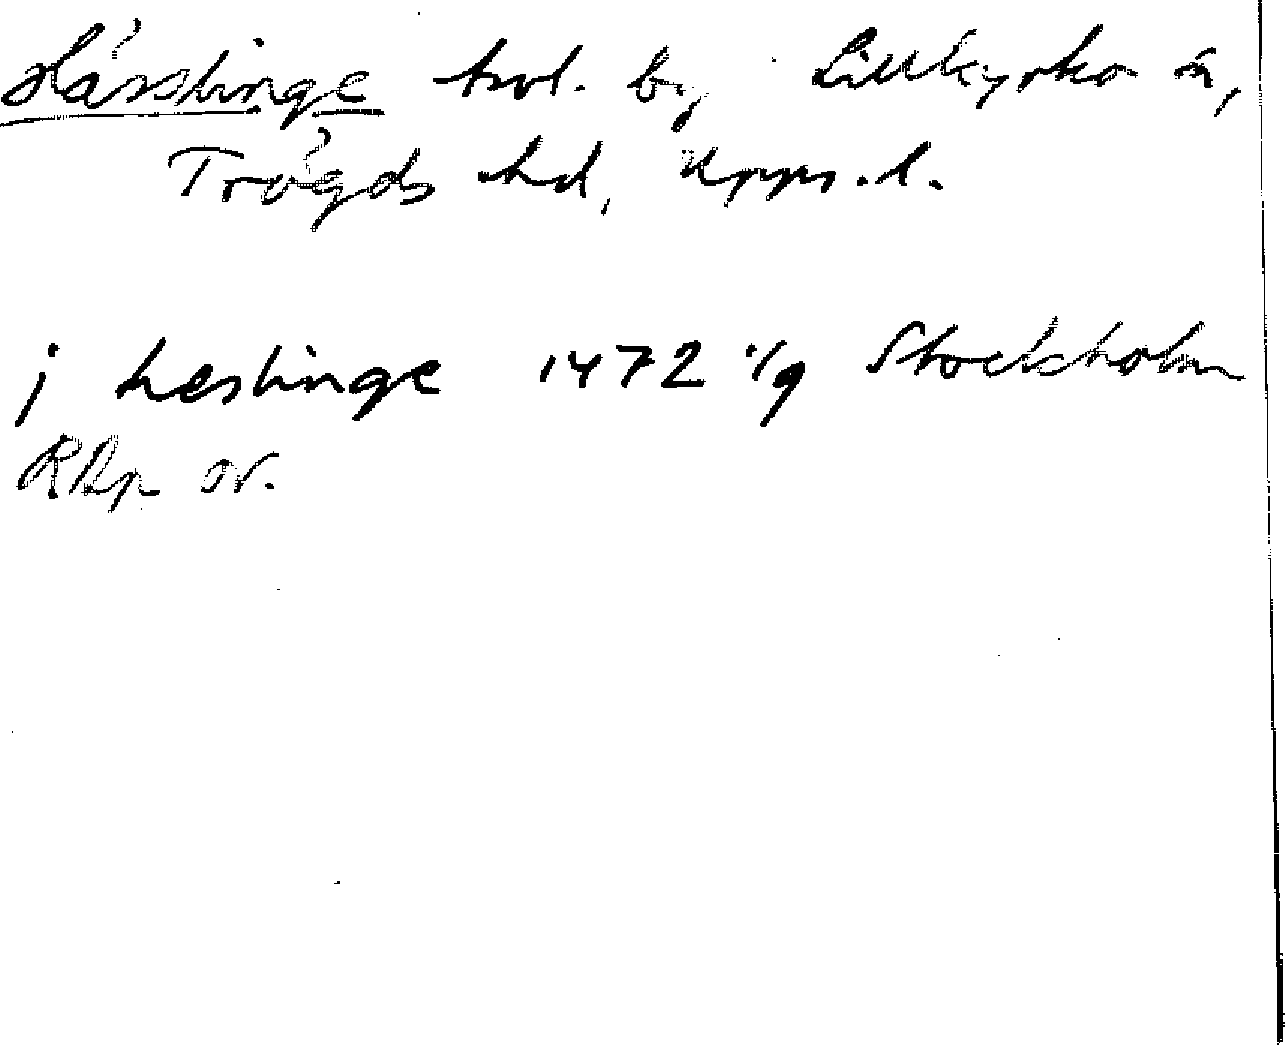 Hässlinge trol. by Littleyrko sn,
Trögds hd, Upps. l.
j heslinge 1472 1/9 Stockholm
RAp or.